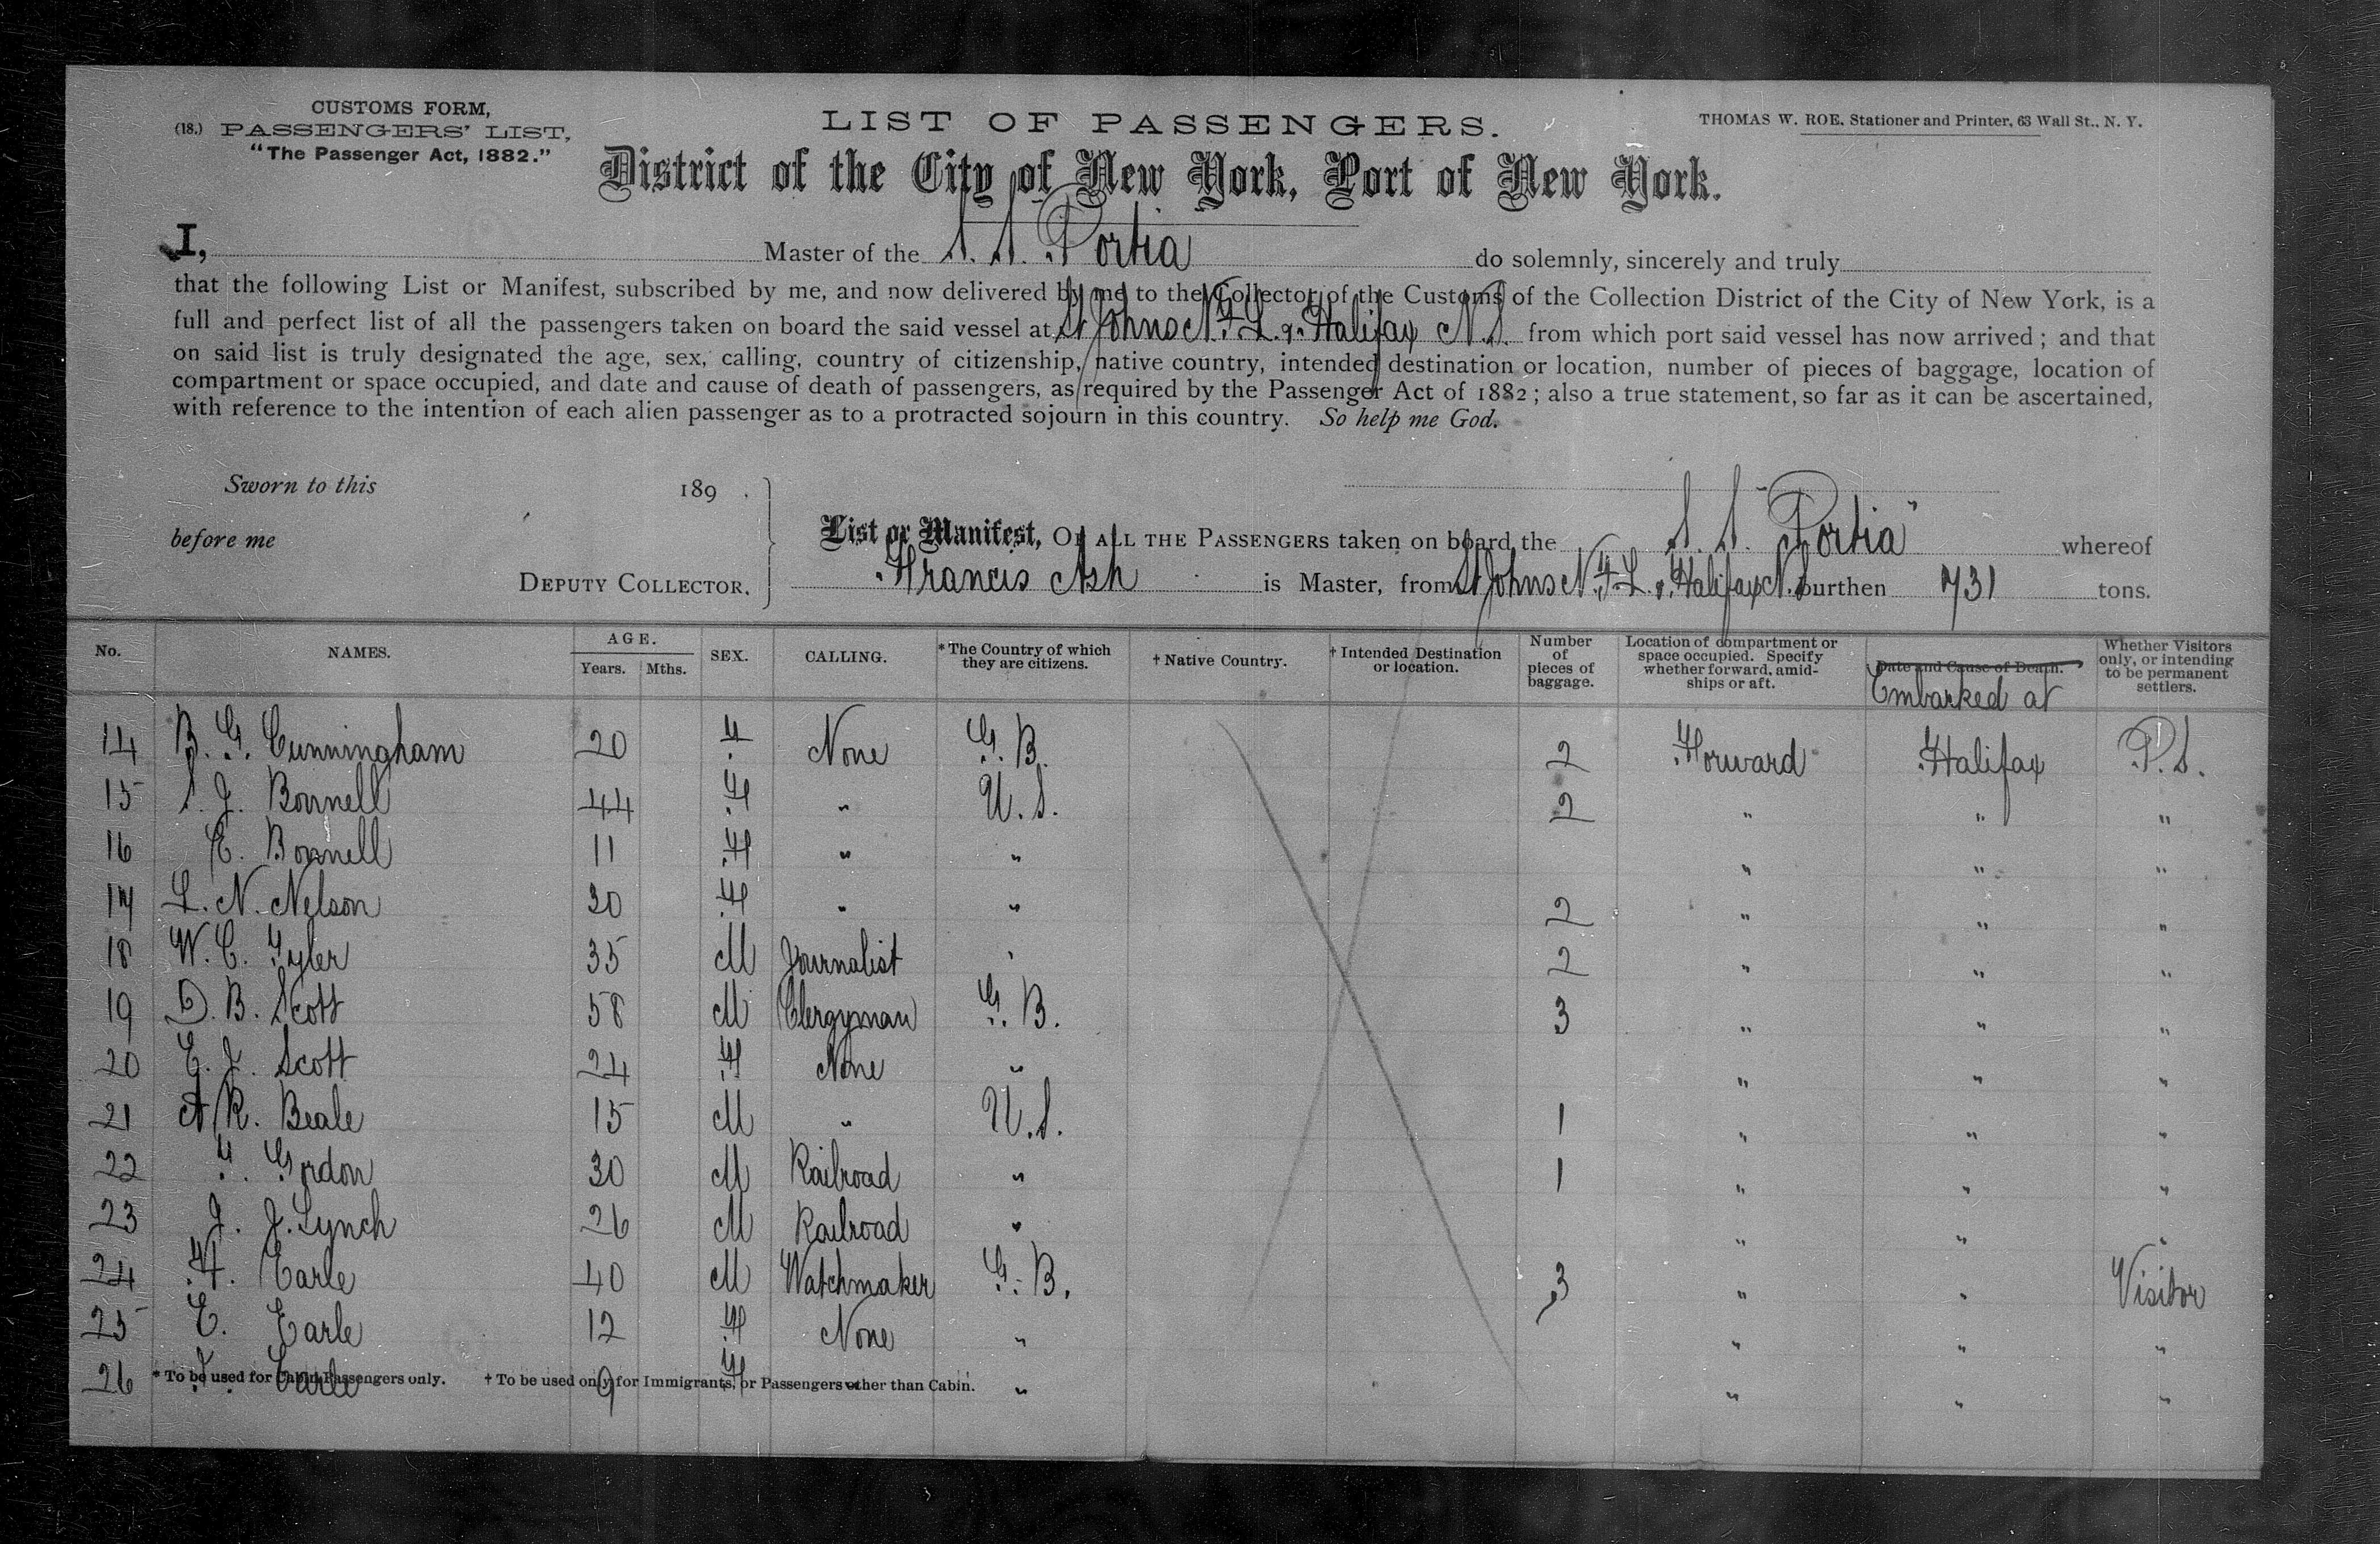 CUSTOMS FORM,
(18.) PASSENGERS' LIST,
"The Passenger Act, 1882."
LIST OF PASSENGERS.
THOMAS W. ROE, Stationer and Printer, 63 Wall St., N. Y.
District of the City of New York, Port of New York.
I, Master of the S. S. Portia do solemnly, sincerely and truly
that the following List or Manifest, subscribed by me, and now delivered by me to the Collector of the Customs of the Collection District of the City of New York, is a
full and perfect list of all the passengers taken on board the said vessel at St Johns N.F.L. & Halifax N.S. from which port said vessel has now arrived; and that
on said list is truly designated the age, sex, calling, country of citizenship, native country, intended destination or location, number of pieces of baggage, location of
compartment or space occupied, and date and cause of death of passengers, as required by the Passenger Act of 1882; also a true statement, so far as it can be ascertained,
with reference to the intention of each alien passenger as to a protracted sojourn in this country. So help me God.
Sworn to this 189 .
before me
DEPUTY COLLECTOR.
List or Manifest, OF ALL THE PASSENGERS taken on board the S. S. "Portia" whereof
Francis Ash is Master, from St Johns N.F.L. & Halifax N.S. burthen 731 tons.
No. NAMES. AGE. Years. Mths. SEX. CALLING. *The Country of which they are citizens. † Native Country. † Intended Destination or location. Number of pieces of baggage. Location of compartment or space occupied. Specify whether forward, amidships or aft. Date and Cause of Death. Embarked at Whether Visitors only, or intending to be permanent settlers.
14 B. G. Cunningham 20 F None G. B. 2 Forward Halifax P.S.
15 S. J. Bonnell 44 F " U. S. 2 " " "
16 E. Bonnell 11 F " " " " "
17 L. N. Nelson 30 F " " 2 " " "
18 W. C. Tyler 35 M Journalist " 2 " " "
19 D. B. Scott 58 M Clergyman G. B. 3 " " "
20 E. J. Scott 24 F None " " " "
21 A R. Beale 15 M " U. S. 1 " " "
22 F. Gordon 30 M Railroad " 1 " " "
23 J. J. Lynch 26 M Railroad " " " "
24 H. Earle 40 M Watchmaker G. B. 3 " " Visitor
25 E. Earle 12 F None " " " "
26 Earle 9 F " " " " "
* To be used for Cabin Passengers only. † To be used only for Immigrants, or Passengers other than Cabin.